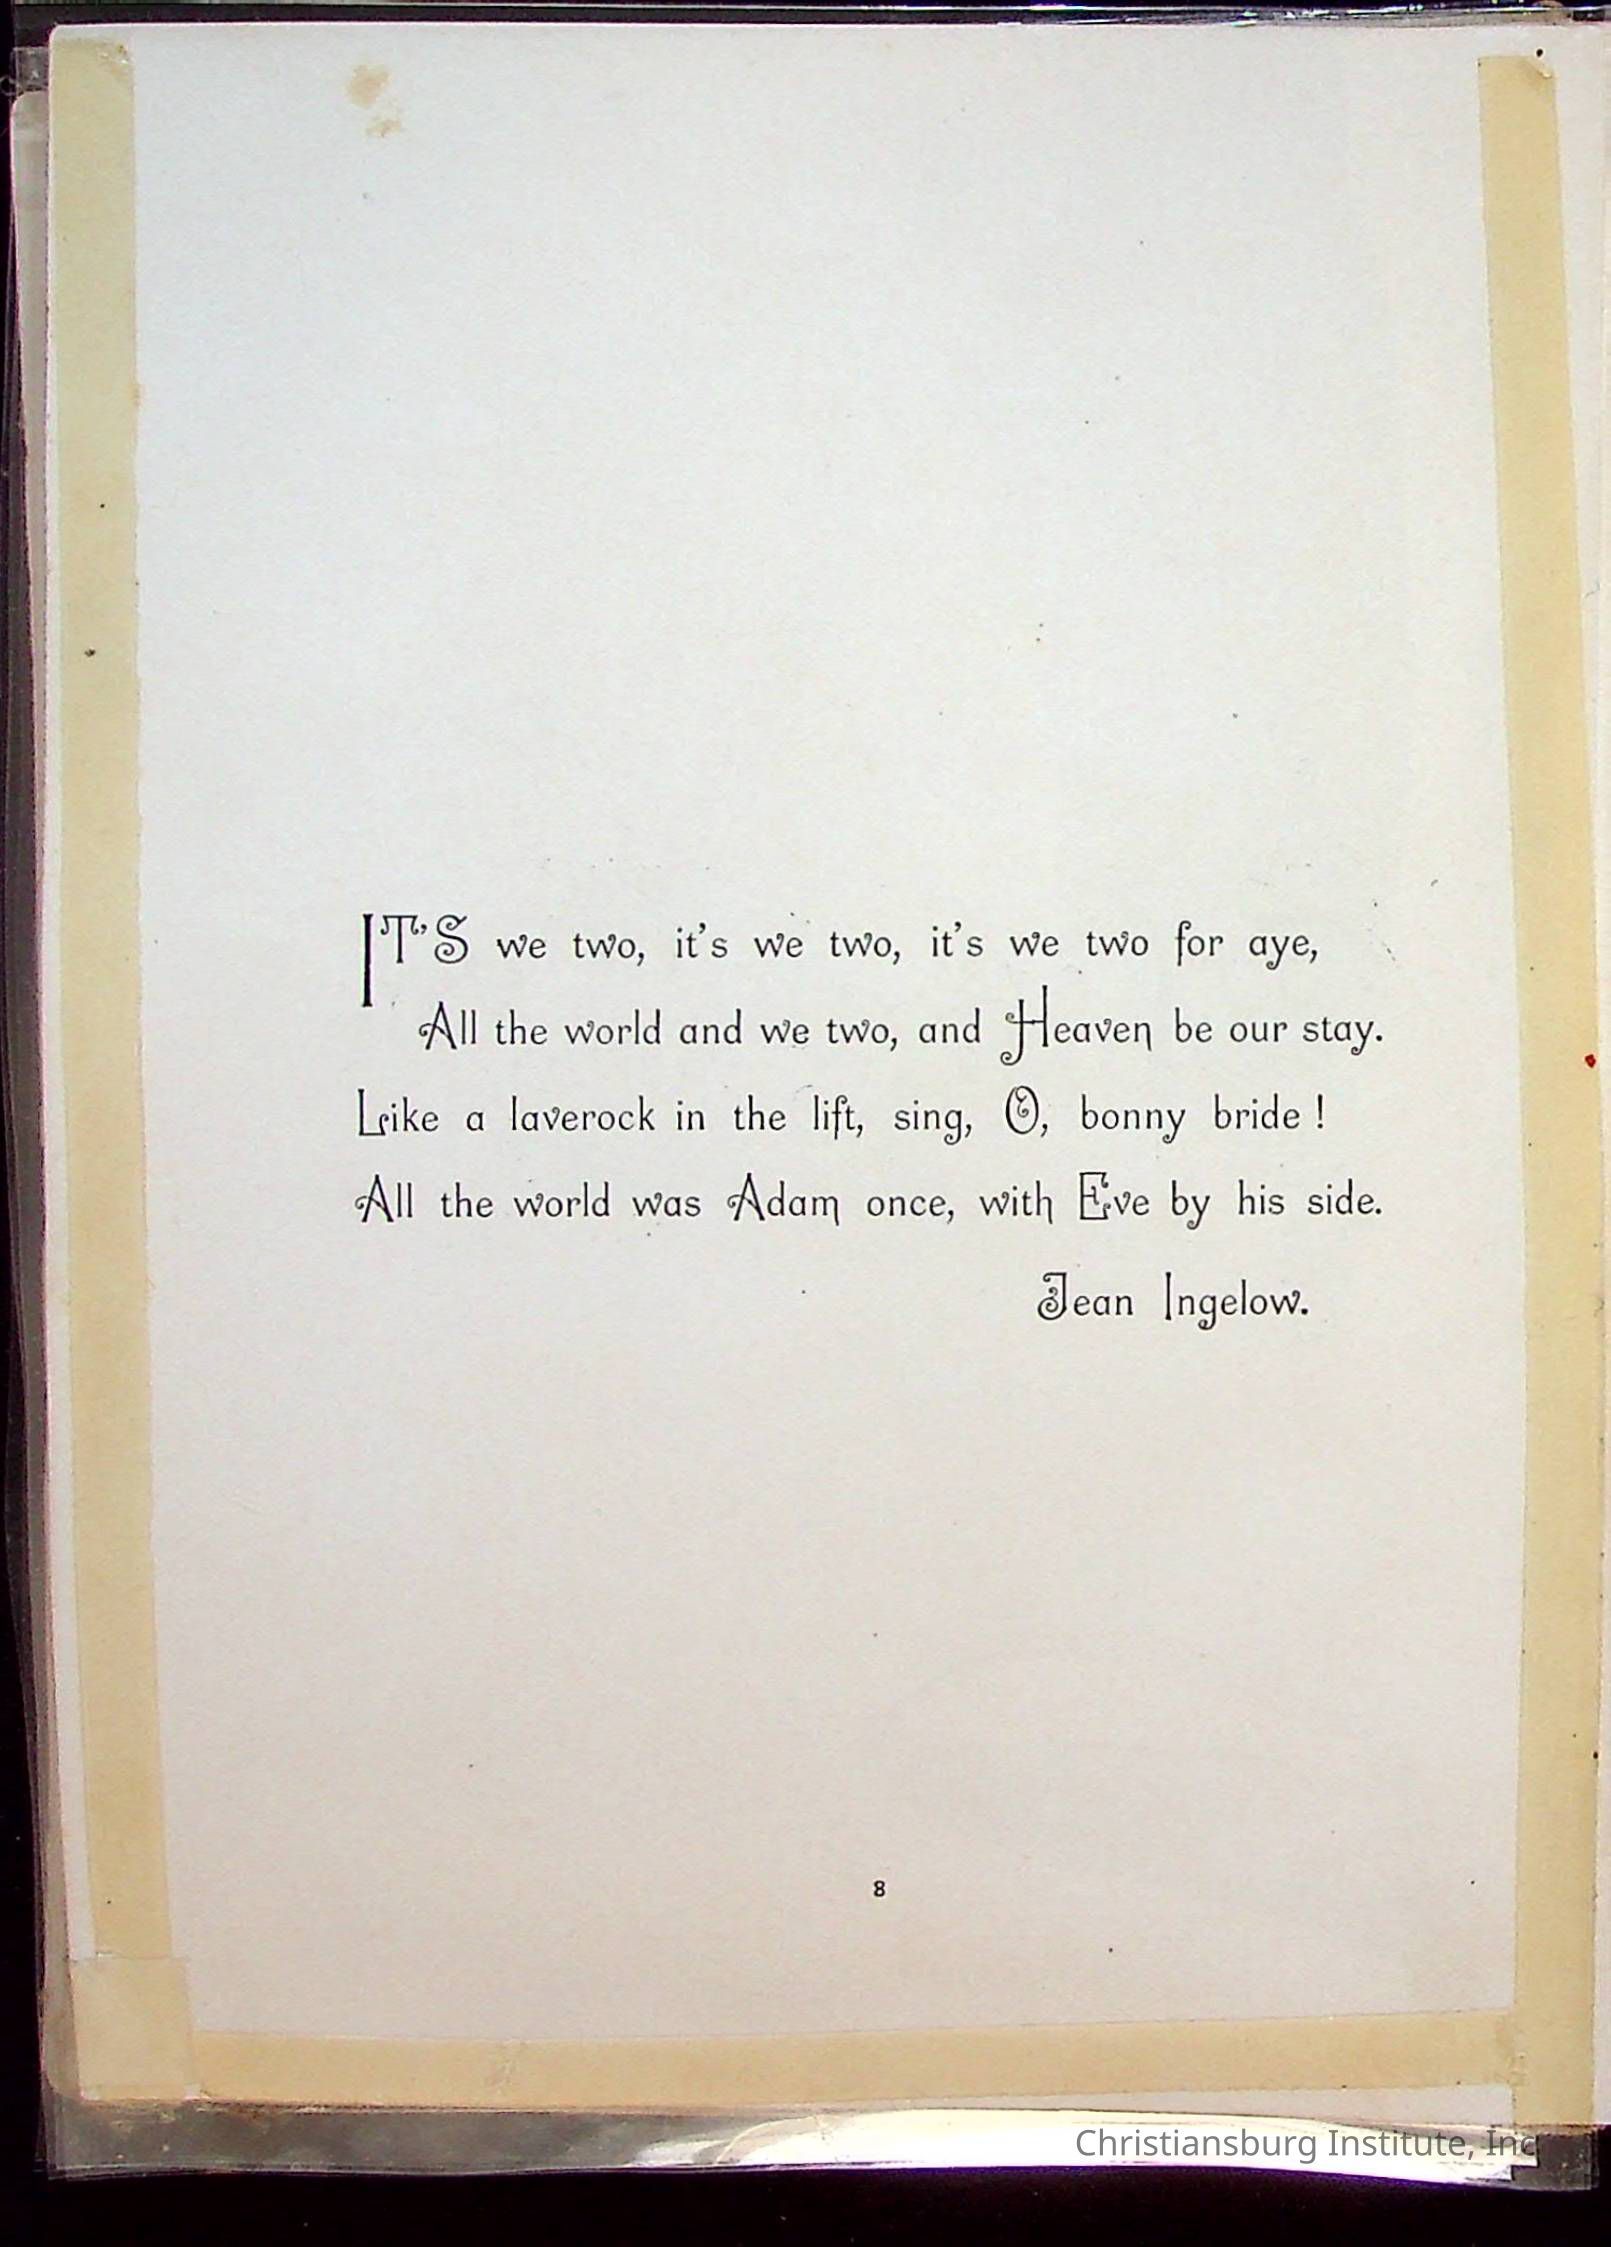 IT'S we two, it's we two, it's we two for aye,
All the world and we two, and Heaven be our stay.
Like a laverock in the lift, sing, O, bonny bride !
All the world was Adam once, with Eve by his side.
Jean Ingelow.
8
Christiansburg Institute, Inc